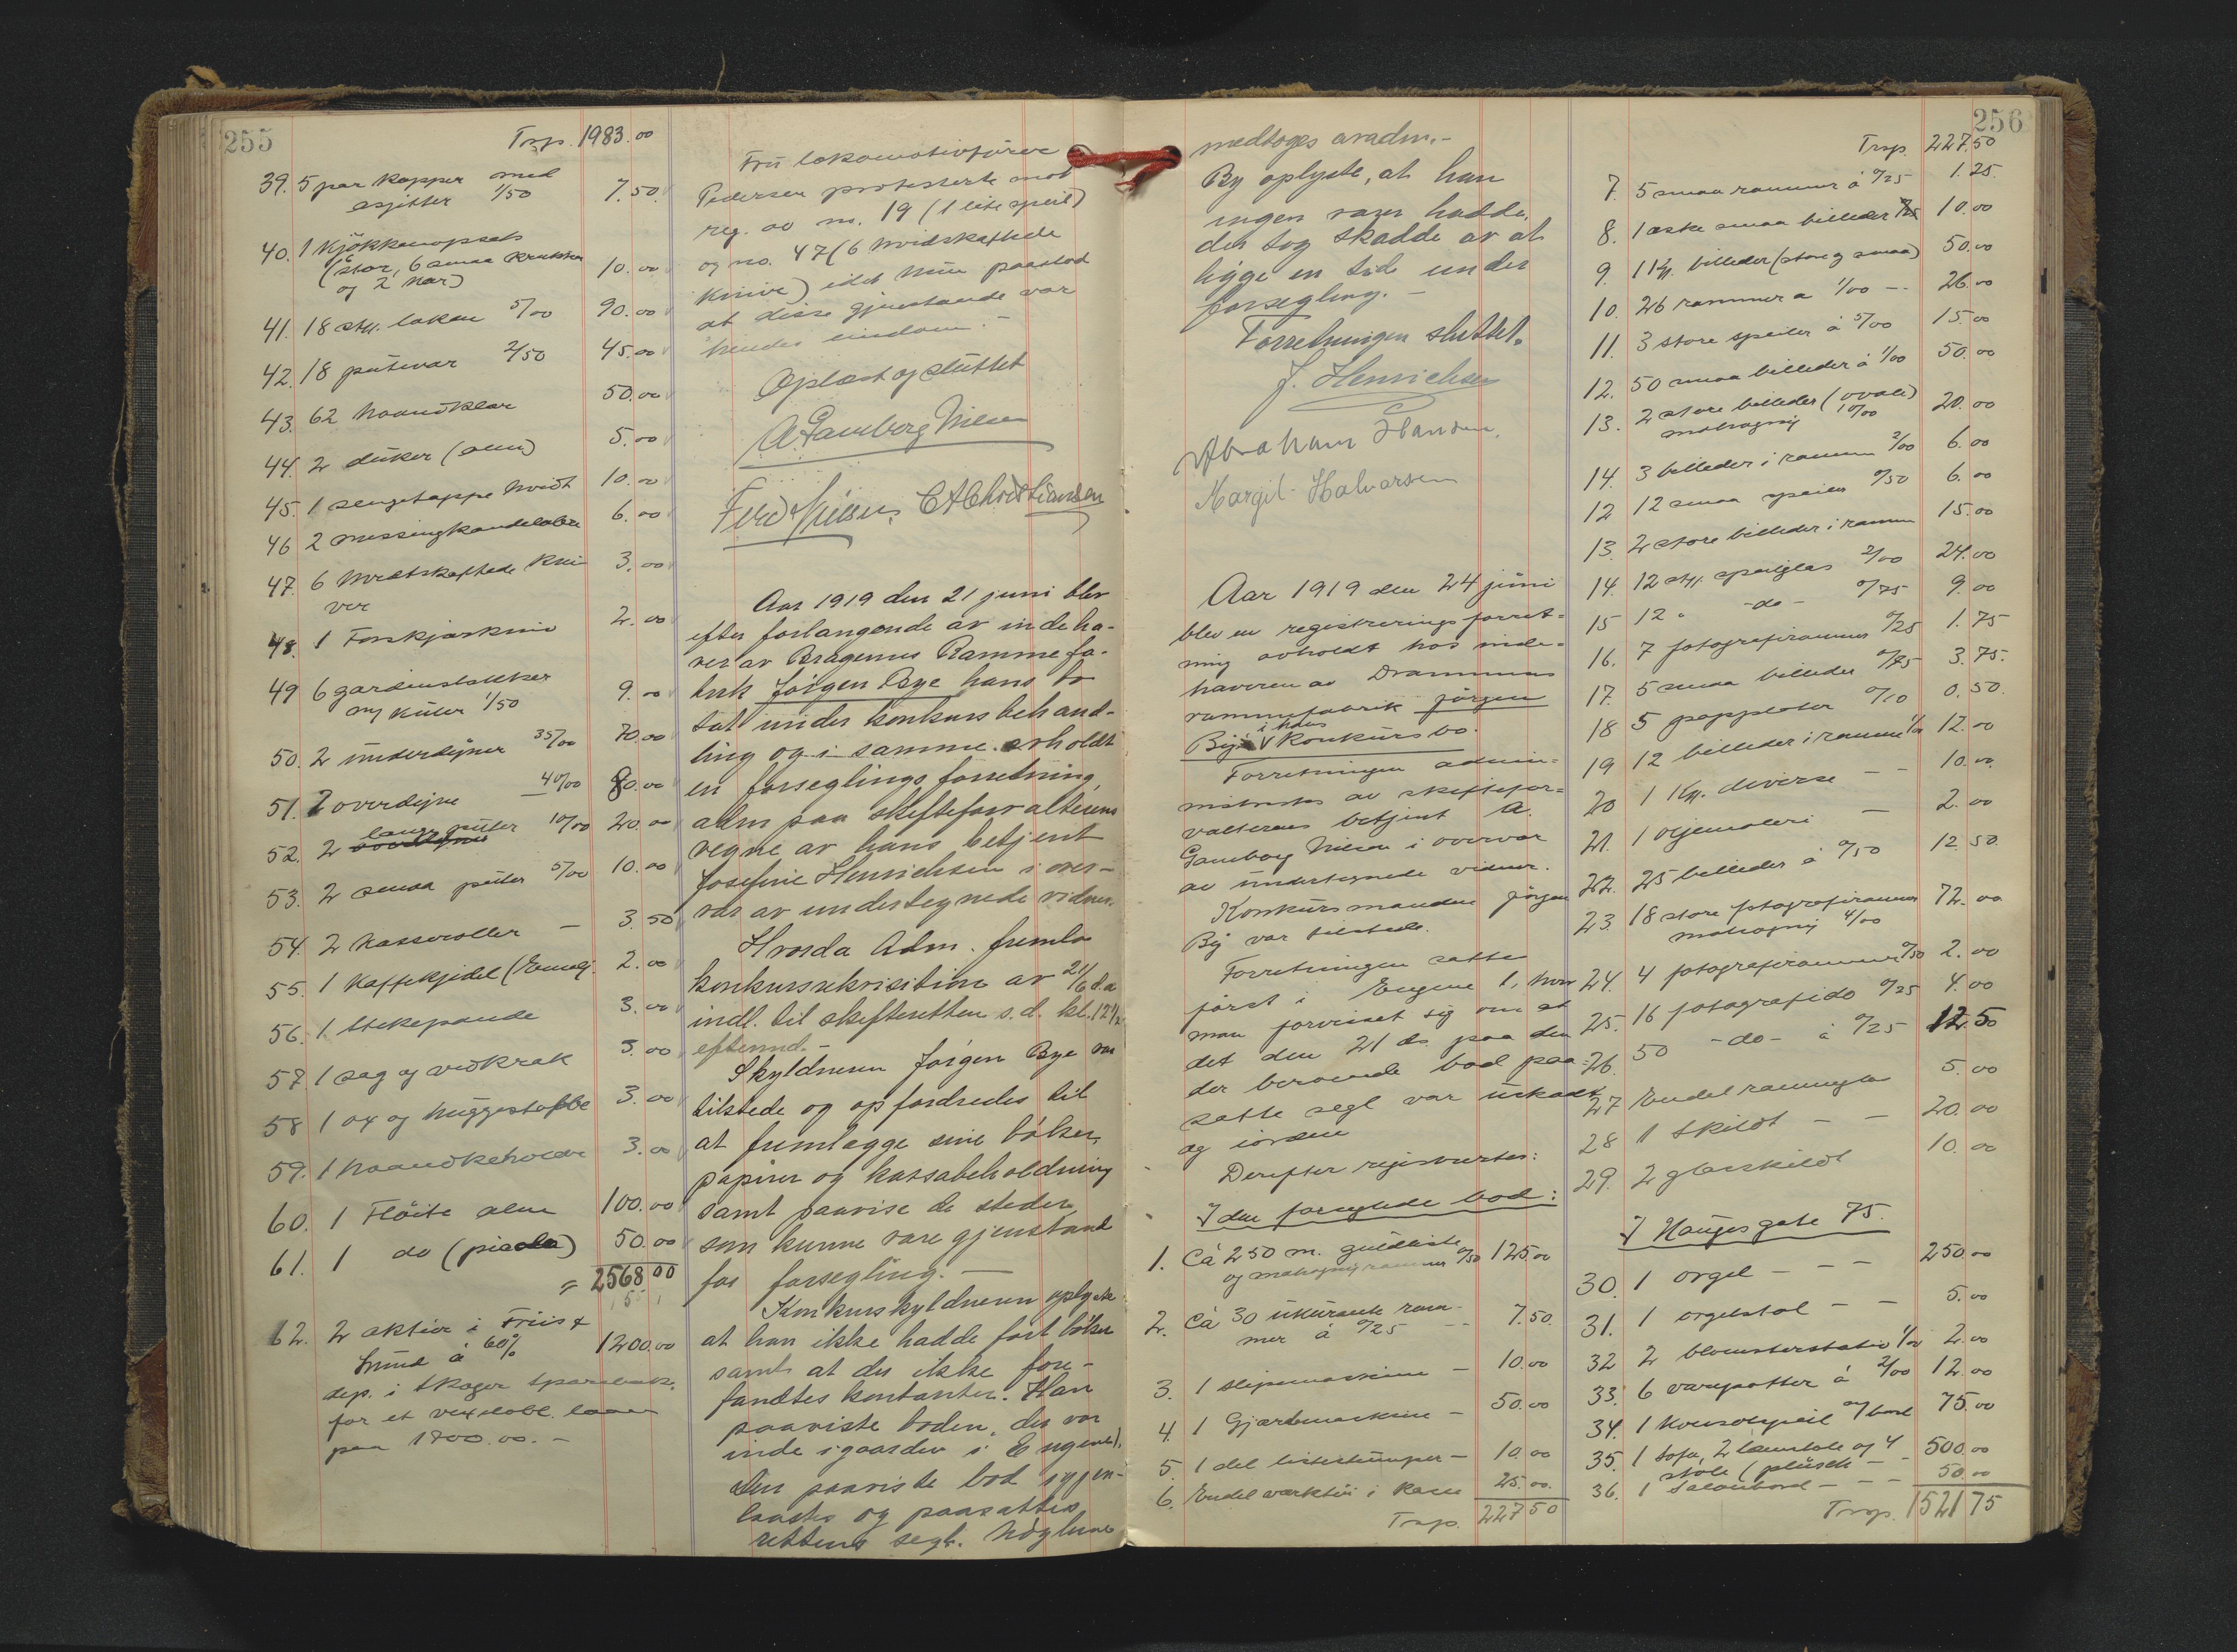 255
Trsp. 1983.00
39. 5 par kopper med
asjetter 1/50 7.50
40. 1 kjökkenopsats
(6 stor, 6 smaa krukker
og 2 kar) 10.00
41. 18 stk. laken 5/00 90.00
42. 18 putevar 2/50 45.00
43. 62 haandklær 50.00
44. 2 duker (alm) 5.00
45. 1 sengetæppe hvidt 10.00
46 2 messingkandelabre 6.00
47. 6 hvidtskaftede kni
ver 3.00
48. 1 Forskjærkniv 2.00
49 6 gardinstokker
m/ kuler 1/50 9.00
50. 2 underdyner 35/00 70.00
51. 2 overdyne 40/00 80.00
52. 2 lange puter 10/00 20.00
53. 2 smaa puter 5/00 10.00
54. 2 kasseroller - 3.50
55. 1 kaffekjedel (Emalj. 2.00
56. 1 stekepande 3.00
57. 1 sag og vedkrak 3.00
58 1 ox og huggestabbe 3.00
59. 1 haandkeholder 3.00
60. 1 Flöite alm 100.00
61. 1 do (picola) 50.00
= 2568.00
62. 2 aktier i Friis &
Lund à 60% 1200.00
dep. i Skoger Sparebank.
for et vexelobl. laan
paa 1800.00. -
Fru lokomotivförer
Pedersen protesterte mot
reg. av no. 19 (1 lite speil)
og no. 47 (6 hvidskaftede
knive) idet hun paastod
at disse gjenstande var
hendes eiendom. -
Oplæst og sluttet
A. Gamborg Nilsen
Ferd Nilsen, C A Christiansen
Aar 1919 den 21 juni blev
efter forlangende av indeha-
ver av Bragernes Ramme fa-
brik Jörgen Bye hans bo
tat under konkursbehand-
ling og i samme avholdt
en forseglings forretning,
adm paa skifteforvalterens
vegne av hans betjent
Josefine Henrichsen i over-
vær av undertegnede vidner.
Hvorda Adm. fremla
konkursrekvisition av 21/6 d.a
indl. til skifteretten s.d. kl. 12 1/2
eftermd. -
Skyldneren Jörgen Bye var
tilstede og opfordredes til
at fremlægge sine böker,
papirer og kassabeholdning
samt paavise de steder
som kunne være gjenstand
for forsegling. -
Konkursskyldneren oplyste
at han ikke hadde fört böker
samt at der ikke fore-
fandtes kontanter. Han
paaviste boden, der var
inde i gaarden i Engene 1.
Den paaviste bod igjen-
laastes og paasattes
rettens segl. Nöglene
256
medtoges av adm. -
By oplyste, at han
ingen varer hadde,
der tog skadde av at
ligge en tid under
forsegling. -
Forretningen sluttet.
J. Henrichsen
Abraham Hansen.
Margit Halvorsen
Aar 1919 den 24 juni
blev en registreringsforret-
ning avholdt hos inde-
haveren av Drammens
rammefabrik Jörgen
By i hans konkursbo.
Forretningen admin-
istrertes av skiftefor-
valterens betjent A.
Gamborg Nilsen i overvær
av undertegnede vidner.
Konkursmanden Jörgen
By var tilstede.
Forretningen sattes
först i Engene 1, hvor
man forvisset sig om at
det den 21 ds. paa den
der beroende bod paa-
satte segl var uskadt
og iorden
Derefter registrertes:
I den forseglede bod:
1. Cá 250 m. guldliste
og mahognyrammer 0/50 125.00
2. Cá 30 ukurante ram-
mer à 0/25 - - 7.50.
3. 1 slipemaskine - 10.00
4. 1 Gjærdemaskine - 50.00
5. 1 del listestumper - 10.00
6. Endel værktöi i kasse 25.00.
Trsp. 227 50
Trsp. 227.50
7. 5 smaa rammer à 0/25 1.25.
8. 1 æske smaa billeder 10.00
9. 1 ks. billeder (store og smaa) 50.00
10. 26 rammer a 1/00 - - 26.00
11. 3 store speiler à 5/00 15.00
12. 50 smaa billeder à 1/00 50.00
13. 2 store billeder (ovale)
mahogny 10/00 20.00
14. 3 billeder i ramme 2/00 6.00
12 12 smaa speiler 0/50 6.00
13. 2 store billeder i ramme 15.00
14. 12 stk. speilglas 2/00 24.00
15 12 " -do- 0/75 9.00
16. 7 fotografirammer 0/25 1.75
17. 5 smaa billeder 0/75 3.75.
18 5 papplater 0/10 0.50.
19 12 billeder i ramme 1/00 12.00
20 1 ks. diverse - - 10.00
21. 1 oljemaleri - 2.00
22. 25 billeder à 0/50 12.50.
23. 18 store fotografirammer
mahogny 4/00 72.00
24. 4 fotografirammer 0/50 2.00
25. 16 fotografido 0/25 4.00
26. 50 -do- à 0/25 12.50
27 Endel rammeglas 5.00
28 1 skildt - - 20.00
29. 2 glasskildt 10.00
I Haugesgate 75.
30. 1 orgel - - - 250.00
31. 1 orgelstol - - 5.00
32 2 blomsterstativ 1/00 2.00
33. 6 varepotter à 2/00 12.00
34. 1 konsolspeil m/ bord 75.00
35. 1 sofa, 2 lænstole og 4
stole (plüsch - - 500.00
36. 1 Salonbord - - - 50.00
Trsp. 1521 75